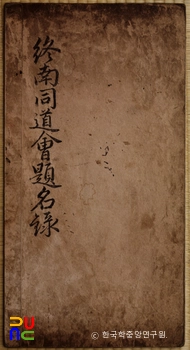 終南同道會題名錄
ⓒ 한국학중앙연구원